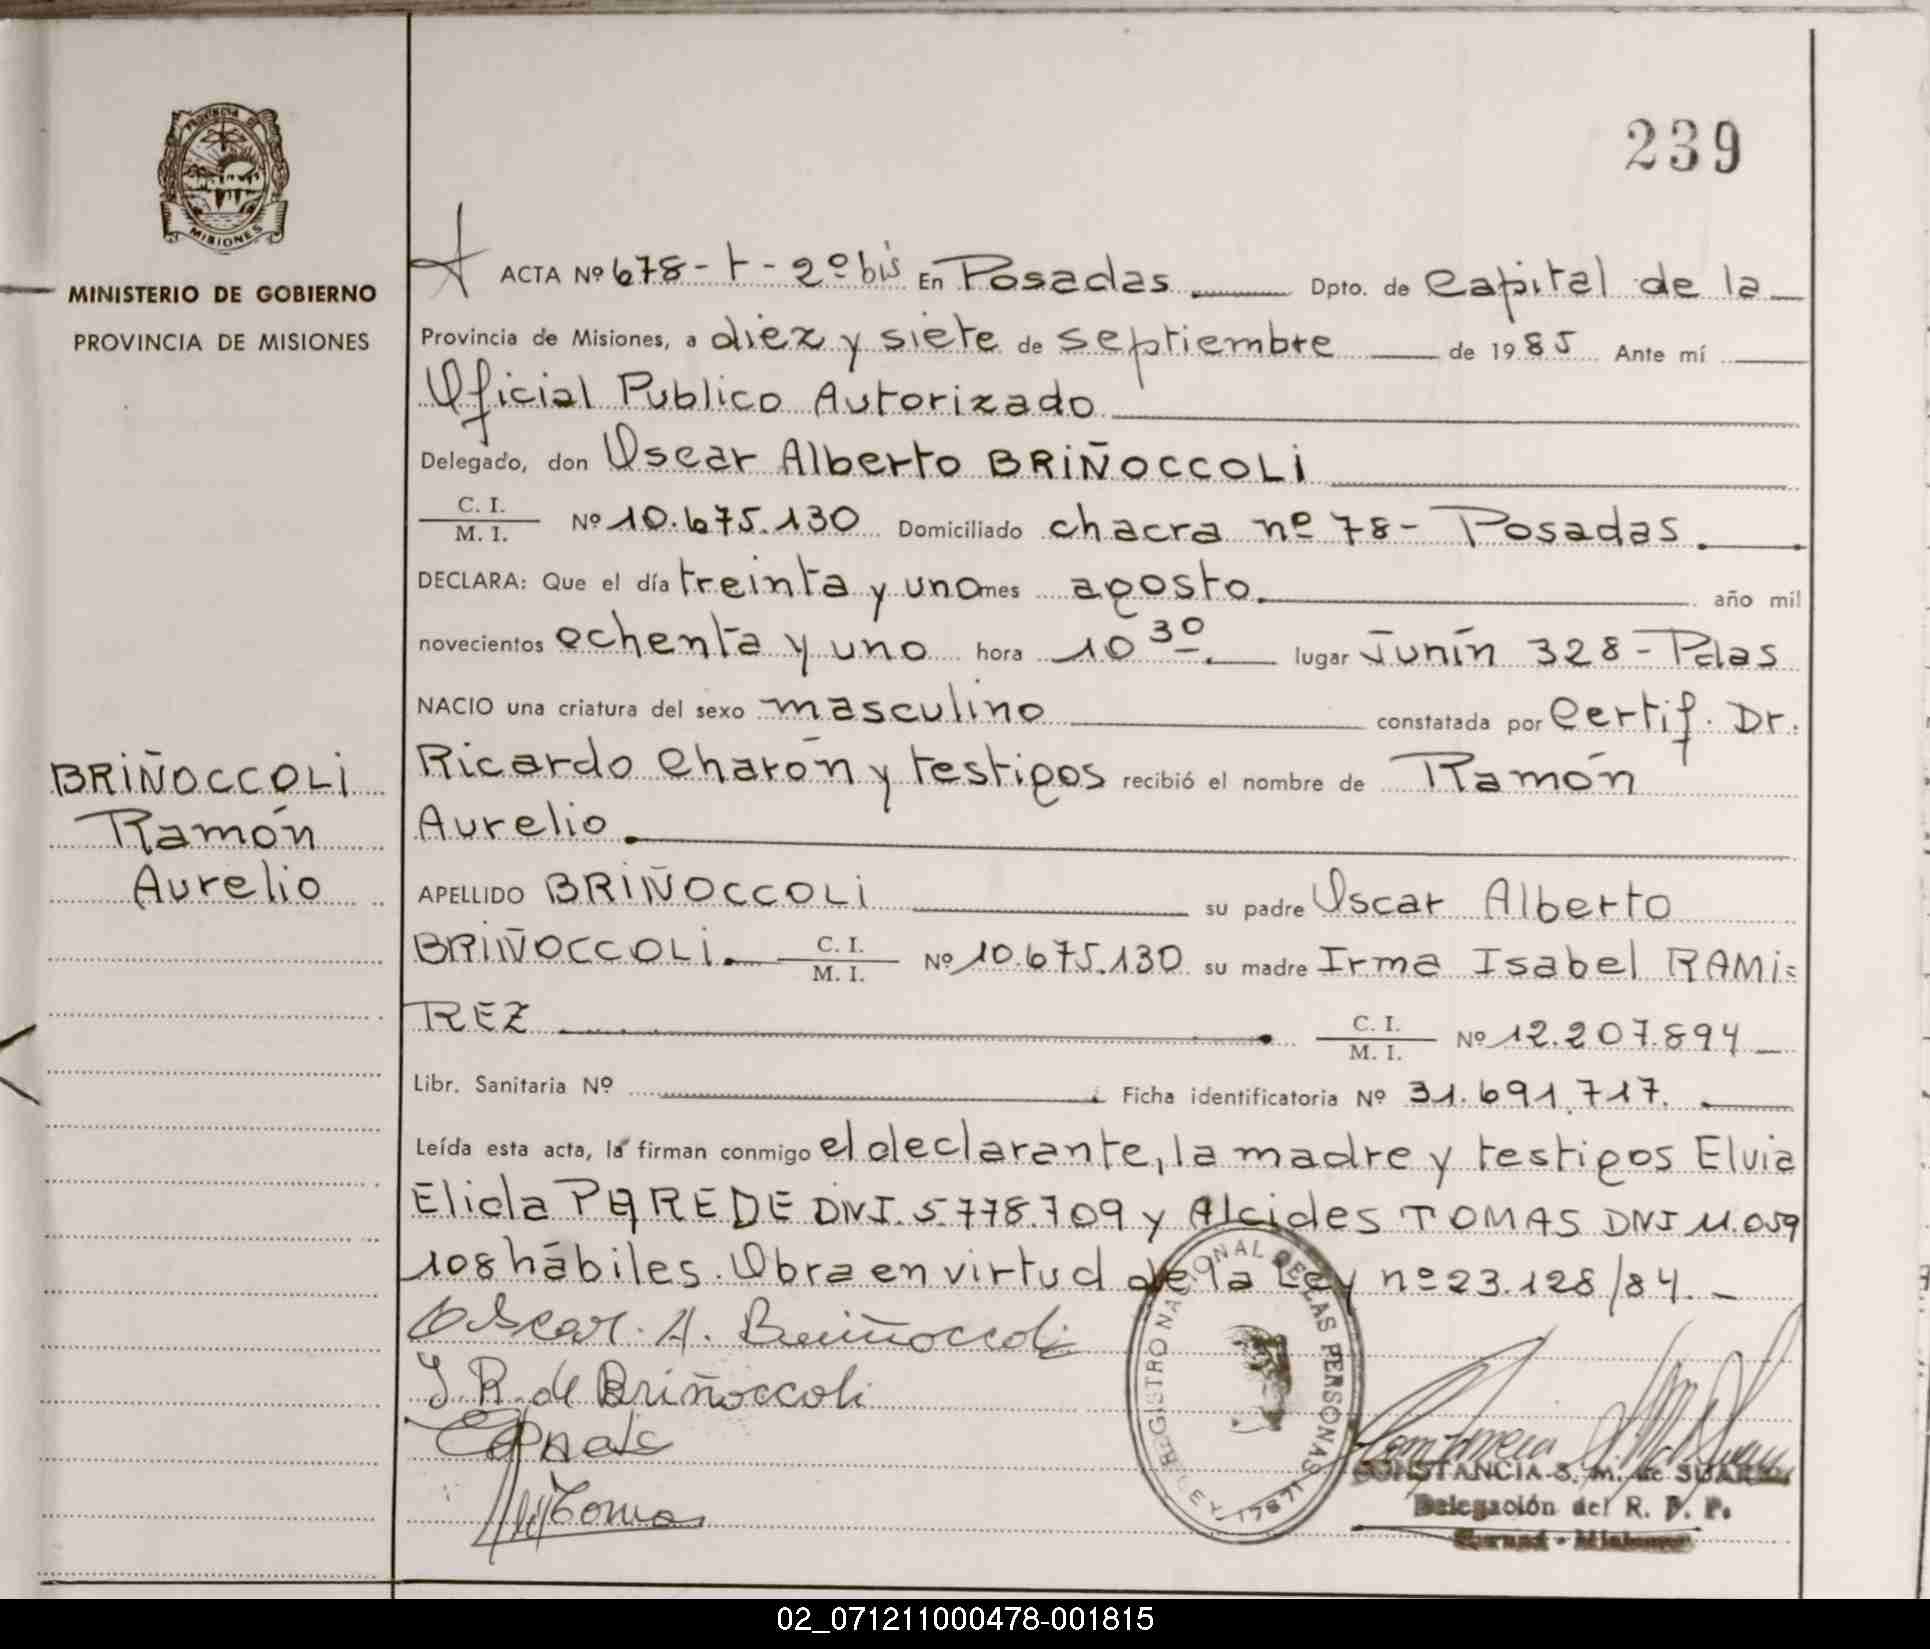 PROVINCIA DE
MISIONES
MINISTERIO DE GOBIERNO
PROVINCIA DE MISIONES
239
ACTA Nº 678-t-2º bis En Posadas Dpto. de Capital de la
Provincia de Misiones, a diez y siete de septiembre de 1985 Ante mí
Oficial Publico Autorizado
Delegado, don Oscar Alberto BRIÑOCCOLI
C. I.
M. I. Nº 10.675.130 Domiciliado chacra nº 78 - Posadas.
DECLARA: Que el día treinta y uno mes agosto. año mil
novecientos ochenta y uno hora 10 30. lugar Junín 328 - Pdas
NACIO una criatura del sexo masculino constatada por Certif. Dr.
Ricardo Charón y testigos recibió el nombre de Ramón
Aurelio.
BRIÑOCCOLI
Ramón
Aurelio
APELLIDO BRIÑOCCOLI su padre Oscar Alberto
BRIÑOCCOLI. C. I.
M. I. Nº 10.675.130 su madre Irma Isabel RAMI=
REZ C. I.
M. I. Nº 12.207.894
Libr. Sanitaria Nº Ficha identificatoria Nº 31.691.717.
Leída esta acta, la firman conmigo el declarante, la madre y testigos Elvia
Elida PAREDE DNI. 5.778.709 y Alcides TOMAS DNI 11.059
108 hábiles. Obra en virtud de la Ley nº 23.128/84.-
Oscar. A. Briñoccoli
I. R. de Briñoccoli
REGISTRO NACIONAL DE LAS PERSONAS
LEY 17671
CONSTANCIA S. M. de SUAREZ
Delegación del R. P. P.
02_071211000478-001815